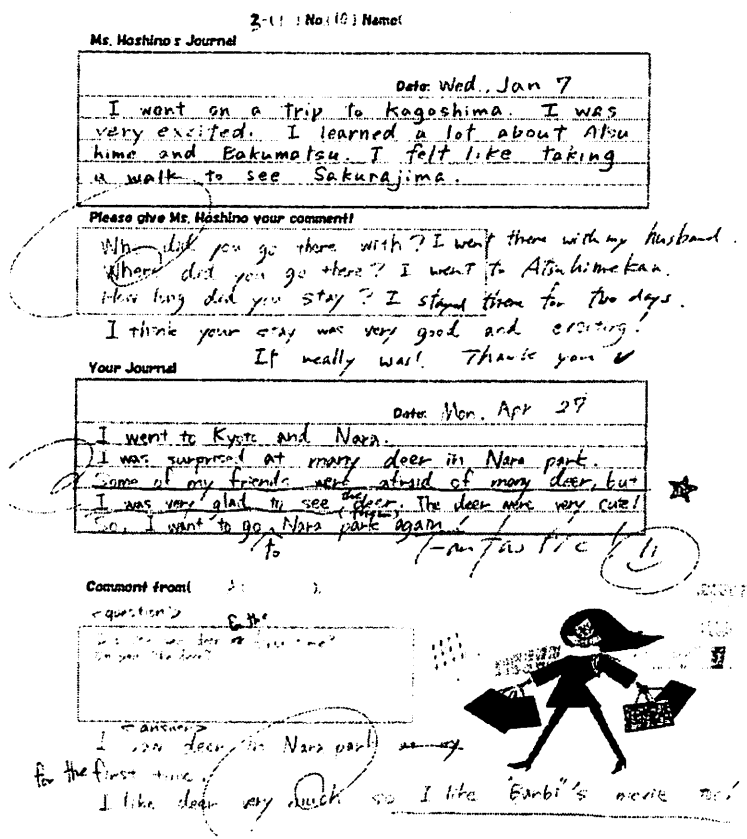 2-( ) No.(10) Name(
Ms. Hoshino's Journal
Date: Wed., Jan 7
I went on a trip to Kagoshima. I was
very excited. I learned a lot about Atsu
hime and Bakumatsu. I felt like taking
a walk to see Sakurajima.
Please give Ms. Hoshino your comment!
Who did you go there with? I went there with my husband.
Where did you go there? I went to Atsuhimekan.
How long did you stay? I stayed there for two days.
I think your stay was very good and exciting!
It really was! Thank you
Your Journal
Date: Mon, Apr 27
I went to Kyoto and Nara.
I was surprised at many deer in Nara park.
Some of my friends were afraid of many deer, but
I was very glad to see the deer. The deer were very cute!
(them)
So, I want to go Nara park again!
to
Fantastic!
Comment from( ).
<question>
for the
deer first time?
Do you like deer?
<answer>
I saw deer in Nara park
for the first time.
I like deer very much so I like "Banbi"'s movie too!